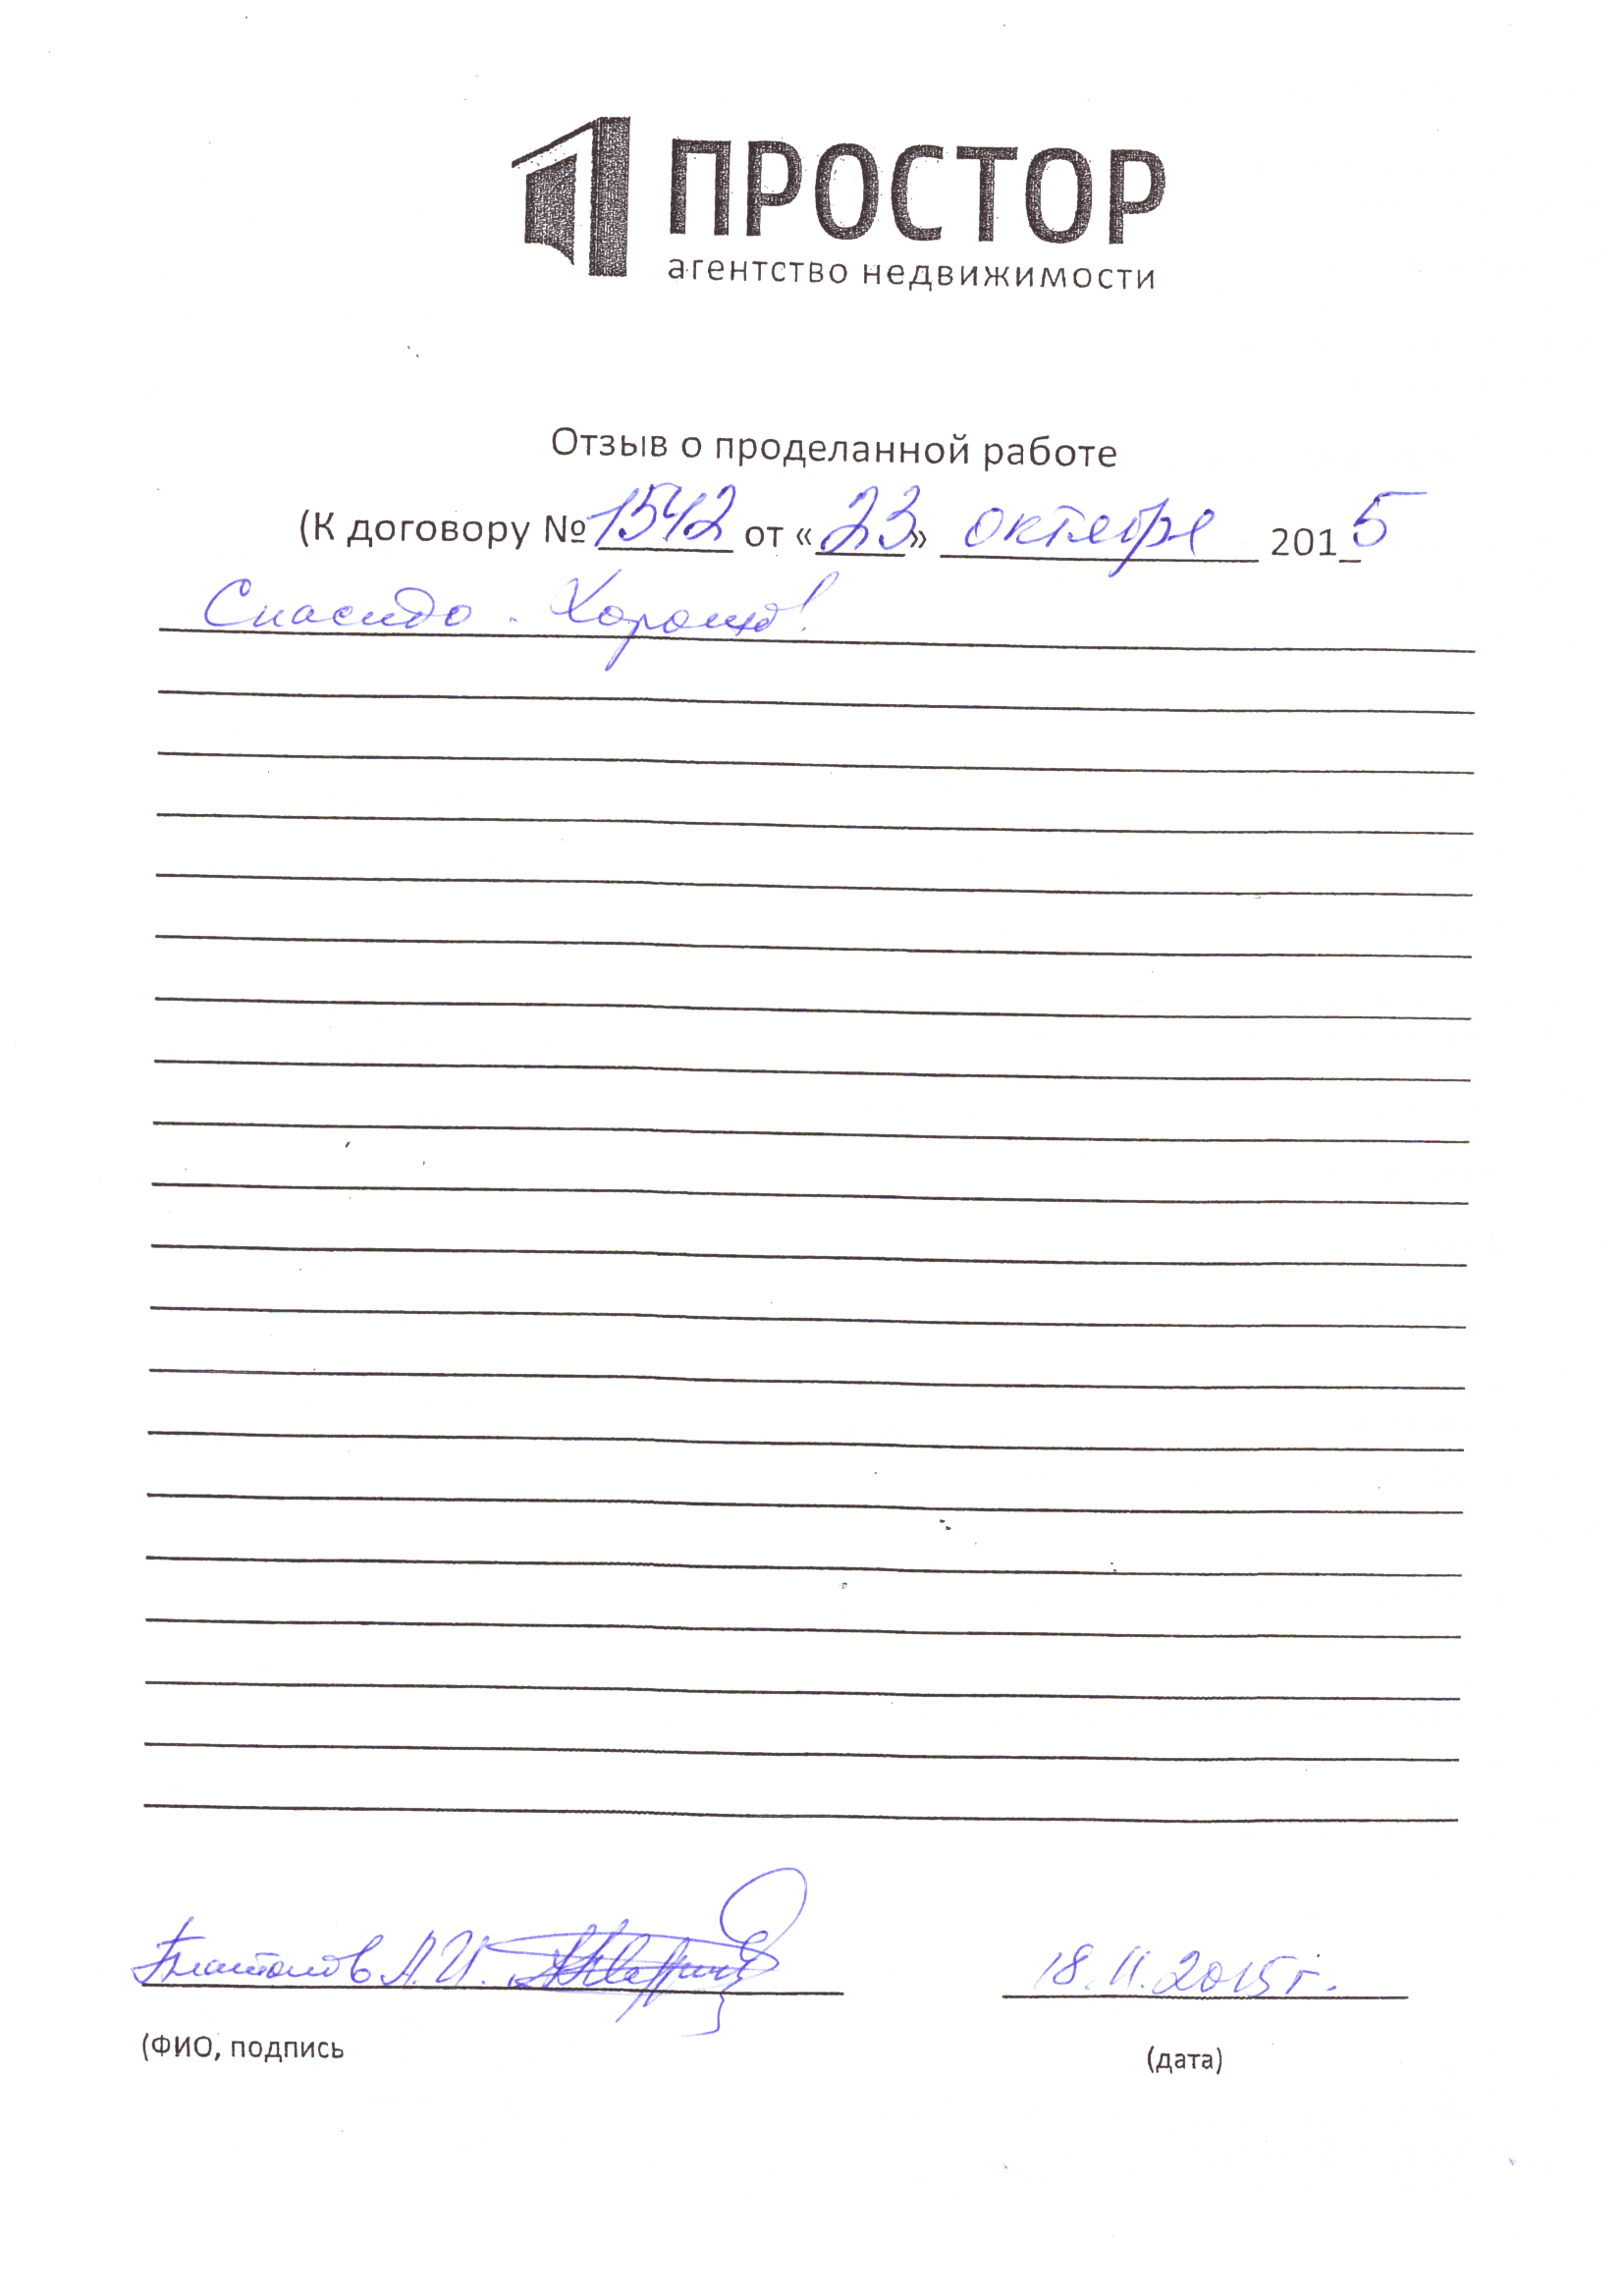 ПРОСТОР
агентство недвижимости
Отзыв о проделанной работе
(К договору № 1542 от «23» октября 2015
Спасибо. Хорошо!
А.И.
18.11.2015г.
(ФИО, подпись
(дата)